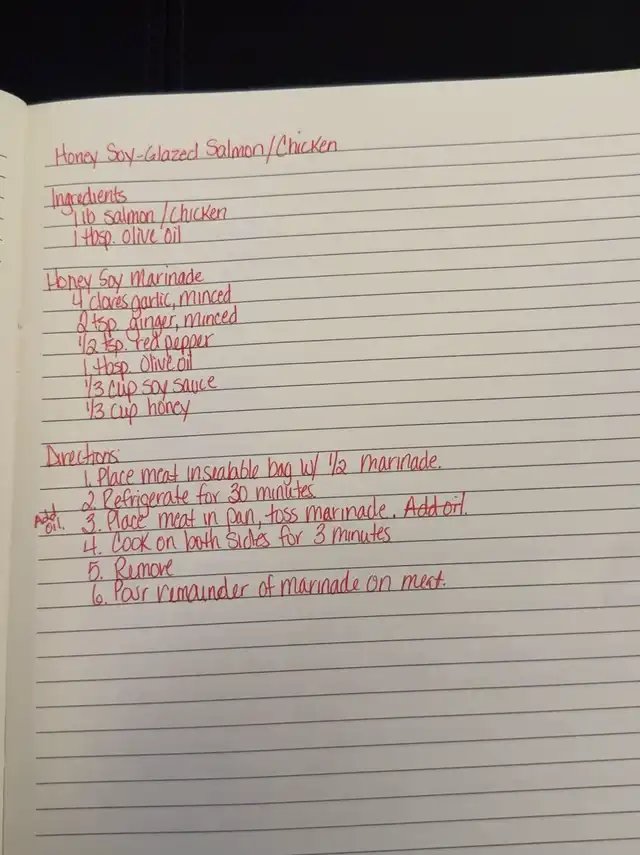 Honey Soy-Glazed Salmon/Chicken
Ingredients
1 lb salmon/chicken
1 tbsp. olive oil
Honey Soy Marinade
4 cloves garlic, minced
2 tsp ginger, minced
1/2 tsp. red pepper
1 tbsp. olive oil
1/3 cup soy sauce
1/3 cup honey
Directions:
1. Place meat in sealable bag w/ 1/2 marinade.
2. Refrigerate for 30 minutes.
Add oil. 3. Place meat in pan, toss marinade. Add oil.
4. Cook on both sides for 3 minutes
5. Remove
6. Pour remainder of marinade on meat.